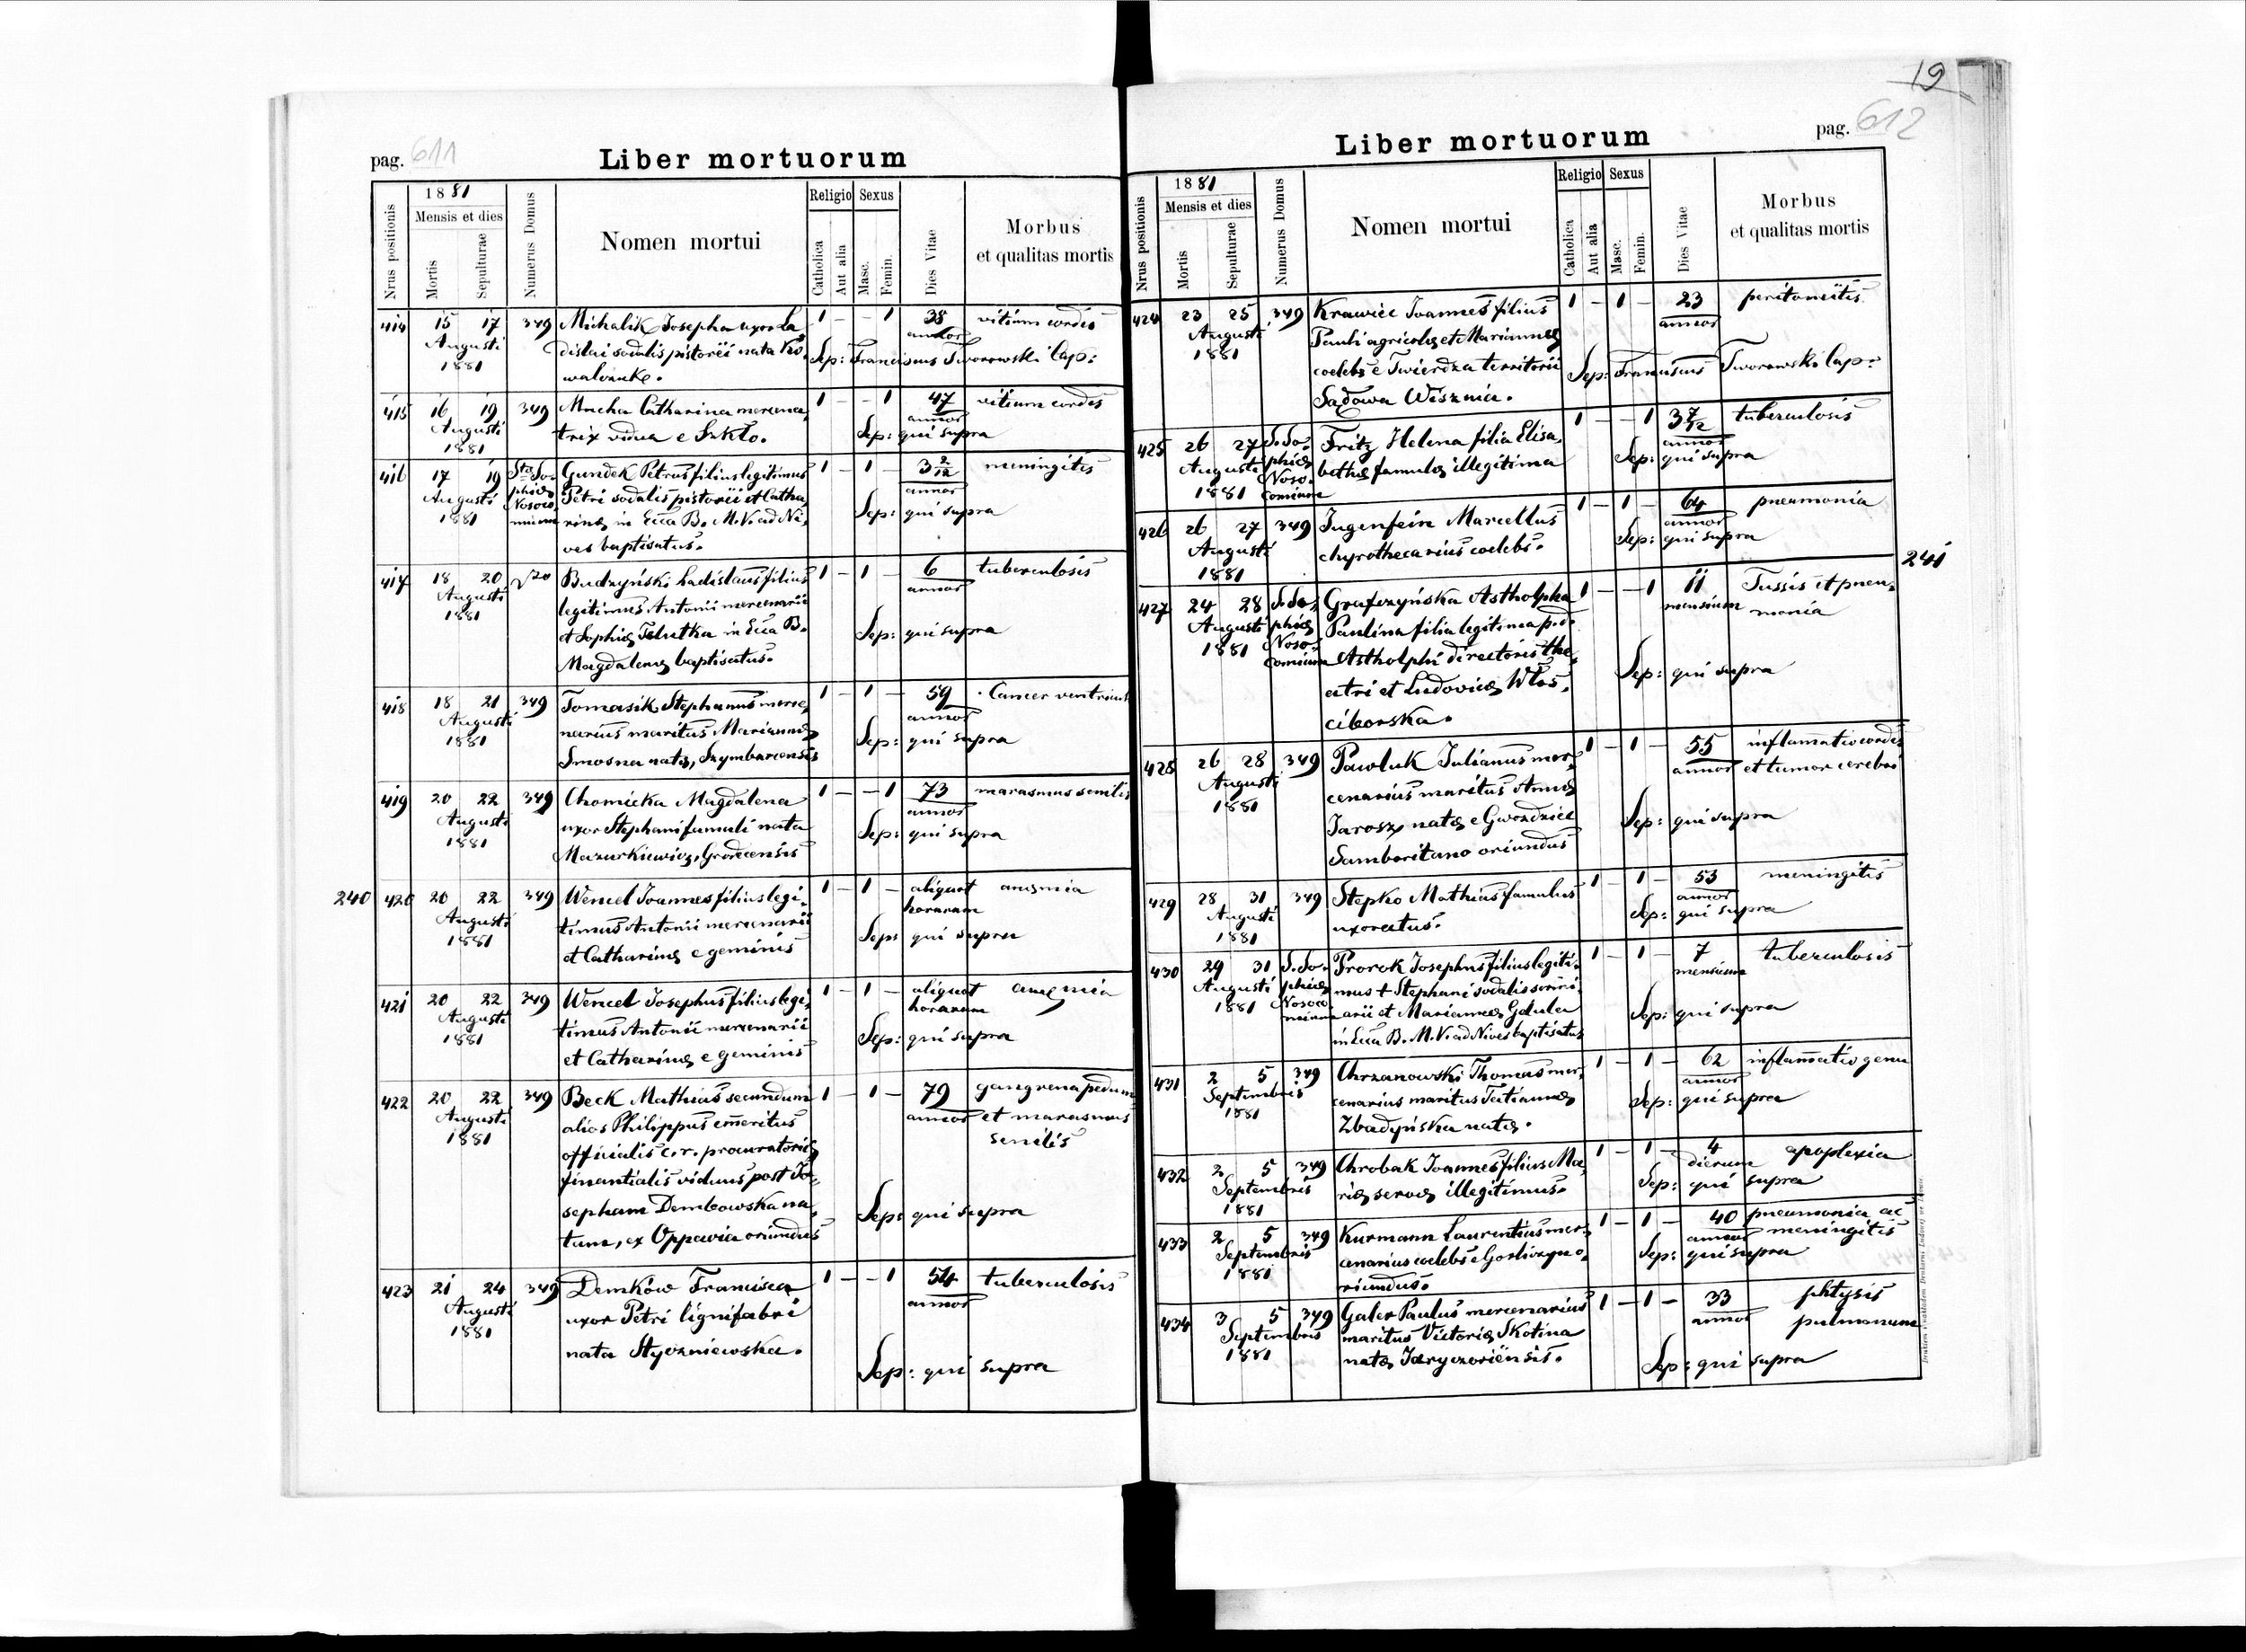 19
pag. 611
Liber mortuorum
Nrus positionis
1881
Mensis et dies
Mortis
Sepulturae
Numerus Domus
Nomen mortui
Religio
Catholica
Aut alia
Sexus
Masc.
Femin.
Dies Vitae
Morbus
et qualitas mortis
414 15 17 349 Michalik Josepha uxor La 1 – – 1 38 vitium cordis
Augusti dislai sodalis pistorii nata Ko, annor
1881 walczuke. Sep: Franciscus Tworowski Cap:
415 16 19 349 Mucha Catharina mercena, 1 – – 1 47 vitium cordis
Augusti trix vidua e Szkło. annor
1881 Sep: qui supra
416 17 19 Stae So- Gundek Petrus filius legitimus 1 – 1 – 3 2/12 meningitis
Augusti phiae Petri sodalis pistorii et Catha, annor
1881 Nosoco, rinae in Ecca B. M. V. ad Ni, Sep: qui supra
mium ves baptisatus.
417 18 20 Budzyński Ladislaus filius 1 – 1 – 6 tuberculosis
Augusti legitimus Antonii mercenarii annor
1881 et Sophiae in Ecca B. Sep: qui supra
Magdalenae baptisatus.
418 18 21 349 Tomasik Stephanus merce, 1 – 1 – 59 Cancer
Augusti narius maritus Mariannae annor
1881 Smosna natae, Szymbarcensis Sep: qui supra
419 20 22 349 Chomicka Magdalena 1 – – 1 73 marasmus senilis
Augusti uxor Stephani famuli nata annor
1881 Mazurkiewicz, Grodecensis Sep: qui supra
240 420 20 22 349 Wencel Joannes filius legi, 1 – 1 – aliquot anaemia
Augusti timus Antonii mercenarii horarum
1881 et Catharinae e geminis Sep: qui supra
421 20 22 349 Wencel Josephus filius legi, 1 – 1 – aliquot anaemia
Augusti timus Antonii mercenarii horarum
1881 et Catharinae e geminis Sep: qui supra
422 20 22 349 Beck Mathias secundum 1 – 1 – 79 gangrena pedum
Augusti alios Philippus emeritus annor et marasmus
1881 officialis c. r. procuratoriae senilis
finantialis viduus post Jo,
sepham Dembowska na, Sep: qui supra
tam, ex Oppavia oriundus
423 21 24 349 Demków Francisca 1 – – 1 54 tuberculosis
Augusti uxor Petri lignifabri annor
1881 nata Styczniewska. Sep: qui supra
pag. 612
Liber mortuorum
Nrus positionis
1881
Mensis et dies
Mortis
Sepulturae
Numerus Domus
Nomen mortui
Religio
Catholica
Aut alia
Sexus
Masc.
Femin.
Dies Vitae
Morbus
et qualitas mortis
424 23 25 349 Krawiec Joannes filius 1 – 1 – 23 peritoniitis
Augusti Pauli agricolae et Mariannae annor
1881 coelebs e Twierdza territorii Sep: Franciscus Tworowski Cap:
Sądowa Wisznia.
425 26 27 S. So- Fritz Helena filia Elisa, 1 – – 1 3 7/12 tuberculosis
Augusti phiae bethae famulae illegitima annor
1881 Noso- comium Sep: qui supra
426 26 27 349 Jugenfein Marcellus 1 – 1 – 64 pneumonia
Augusti chyrothecarius coelebs. annor
1881 Sep: qui supra
241
427 24 28 S. So, Grafczyńska Astholpha 1 – – 1 11 Tussis et pneu,
Augusti phiae Paulina filia legitima p. d. mensium monia
1881 Noso- Astholphi directoris the,
comium atri et Ludovicae Włos, Sep: qui supra
ciborska.
428 26 28 349 Pawluk Julianus mer, 1 – 1 – 55 inflamatio cordis
Augusti cenarius maritus Annae annor et tumor cerebri
1881 Jarosz natae e Gwozdziec Sep: qui supra
Samboritano oriundus
429 28 31 349 Stepko Mathias famulus 1 – 1 – 53 meningitis
Augusti uxoratus. annor
1881 Sep: qui supra
430 29 31 S. So- Prorok Josephus filius legiti- 1 – 1 – 7 tuberculosis
Augusti phiae mus + Stephani sodalis scrini, mensium
1881 Nosoco arii et Mariannae Gdula Sep: qui supra
mium in Ecca B. M. V. ad Nives baptisatus
431 2 5 349 Chrzanowski Thomas mer, 1 – 1 – 62 inflamatio genu
Septembris cenarius maritus Tatiannae annor
1881 Zbadyńska natae. Sep: qui supra
432 2 5 349 Chrobak Joannes filius Ma, 1 – 1 – 4 apoplexia
Septembris riae servae illegitimus. dierum
1881 Sep: qui supra
433 2 5 349 Kurmann Laurentius mer, 1 – 1 – 40 pneumonia ac
Septembris cenarius coelebs e o, annor meningitis
1881 riundus. Sep: qui supra
434 3 5 349 Galer Paulus mercenarius 1 – 1 – 33 phtysis
Septembris maritus Victoriae Skotina annor pulmonum
1881 natae Sep: qui supra